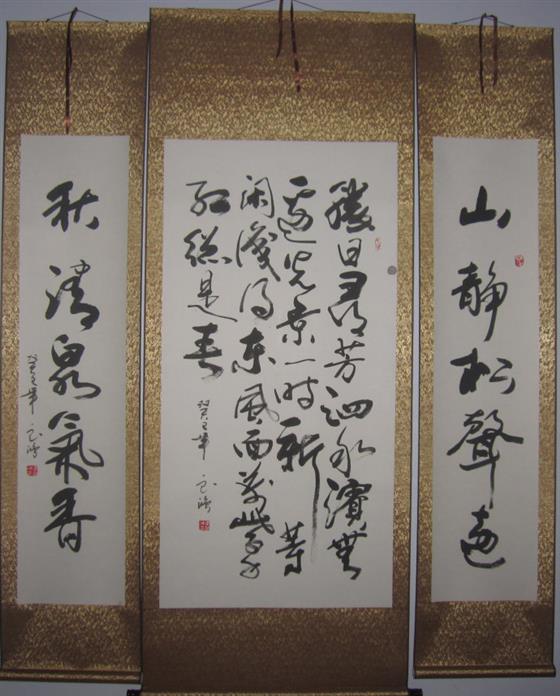 山静松聲遠
勝日尋芳泗水濱無
邊光景一時新等
閑識得東風面萬紫千
紅總是春
癸巳年
秋清泉氣香
癸巳年